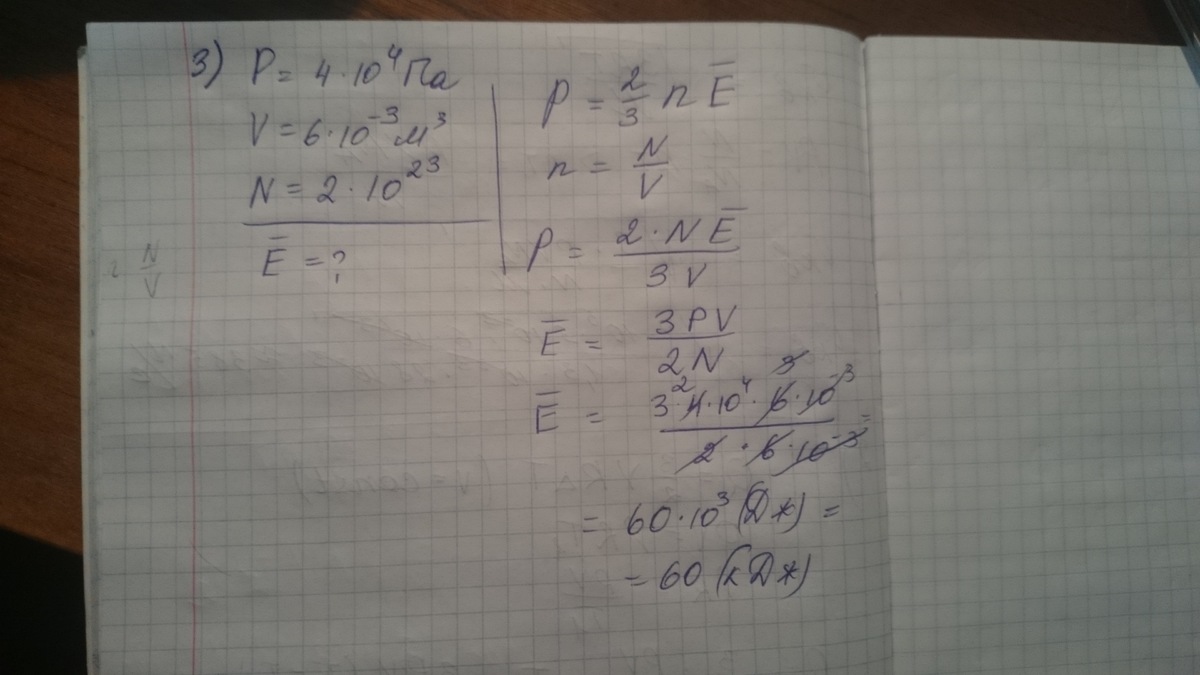 3) P = 4·10⁴ Па
V = 6·10⁻³ м³
N = 2·10²³
E̅ = ?
P = 2/3 n E̅
n = N/V
P = 2·N E̅ / 3 V
E̅ = 3 P V / 2 N
E̅ = 3·4·10⁴·6·10⁻³ / 2·6·10⁻³ =
= 60·10³ (Дж) =
= 60 (кДж)
N/V